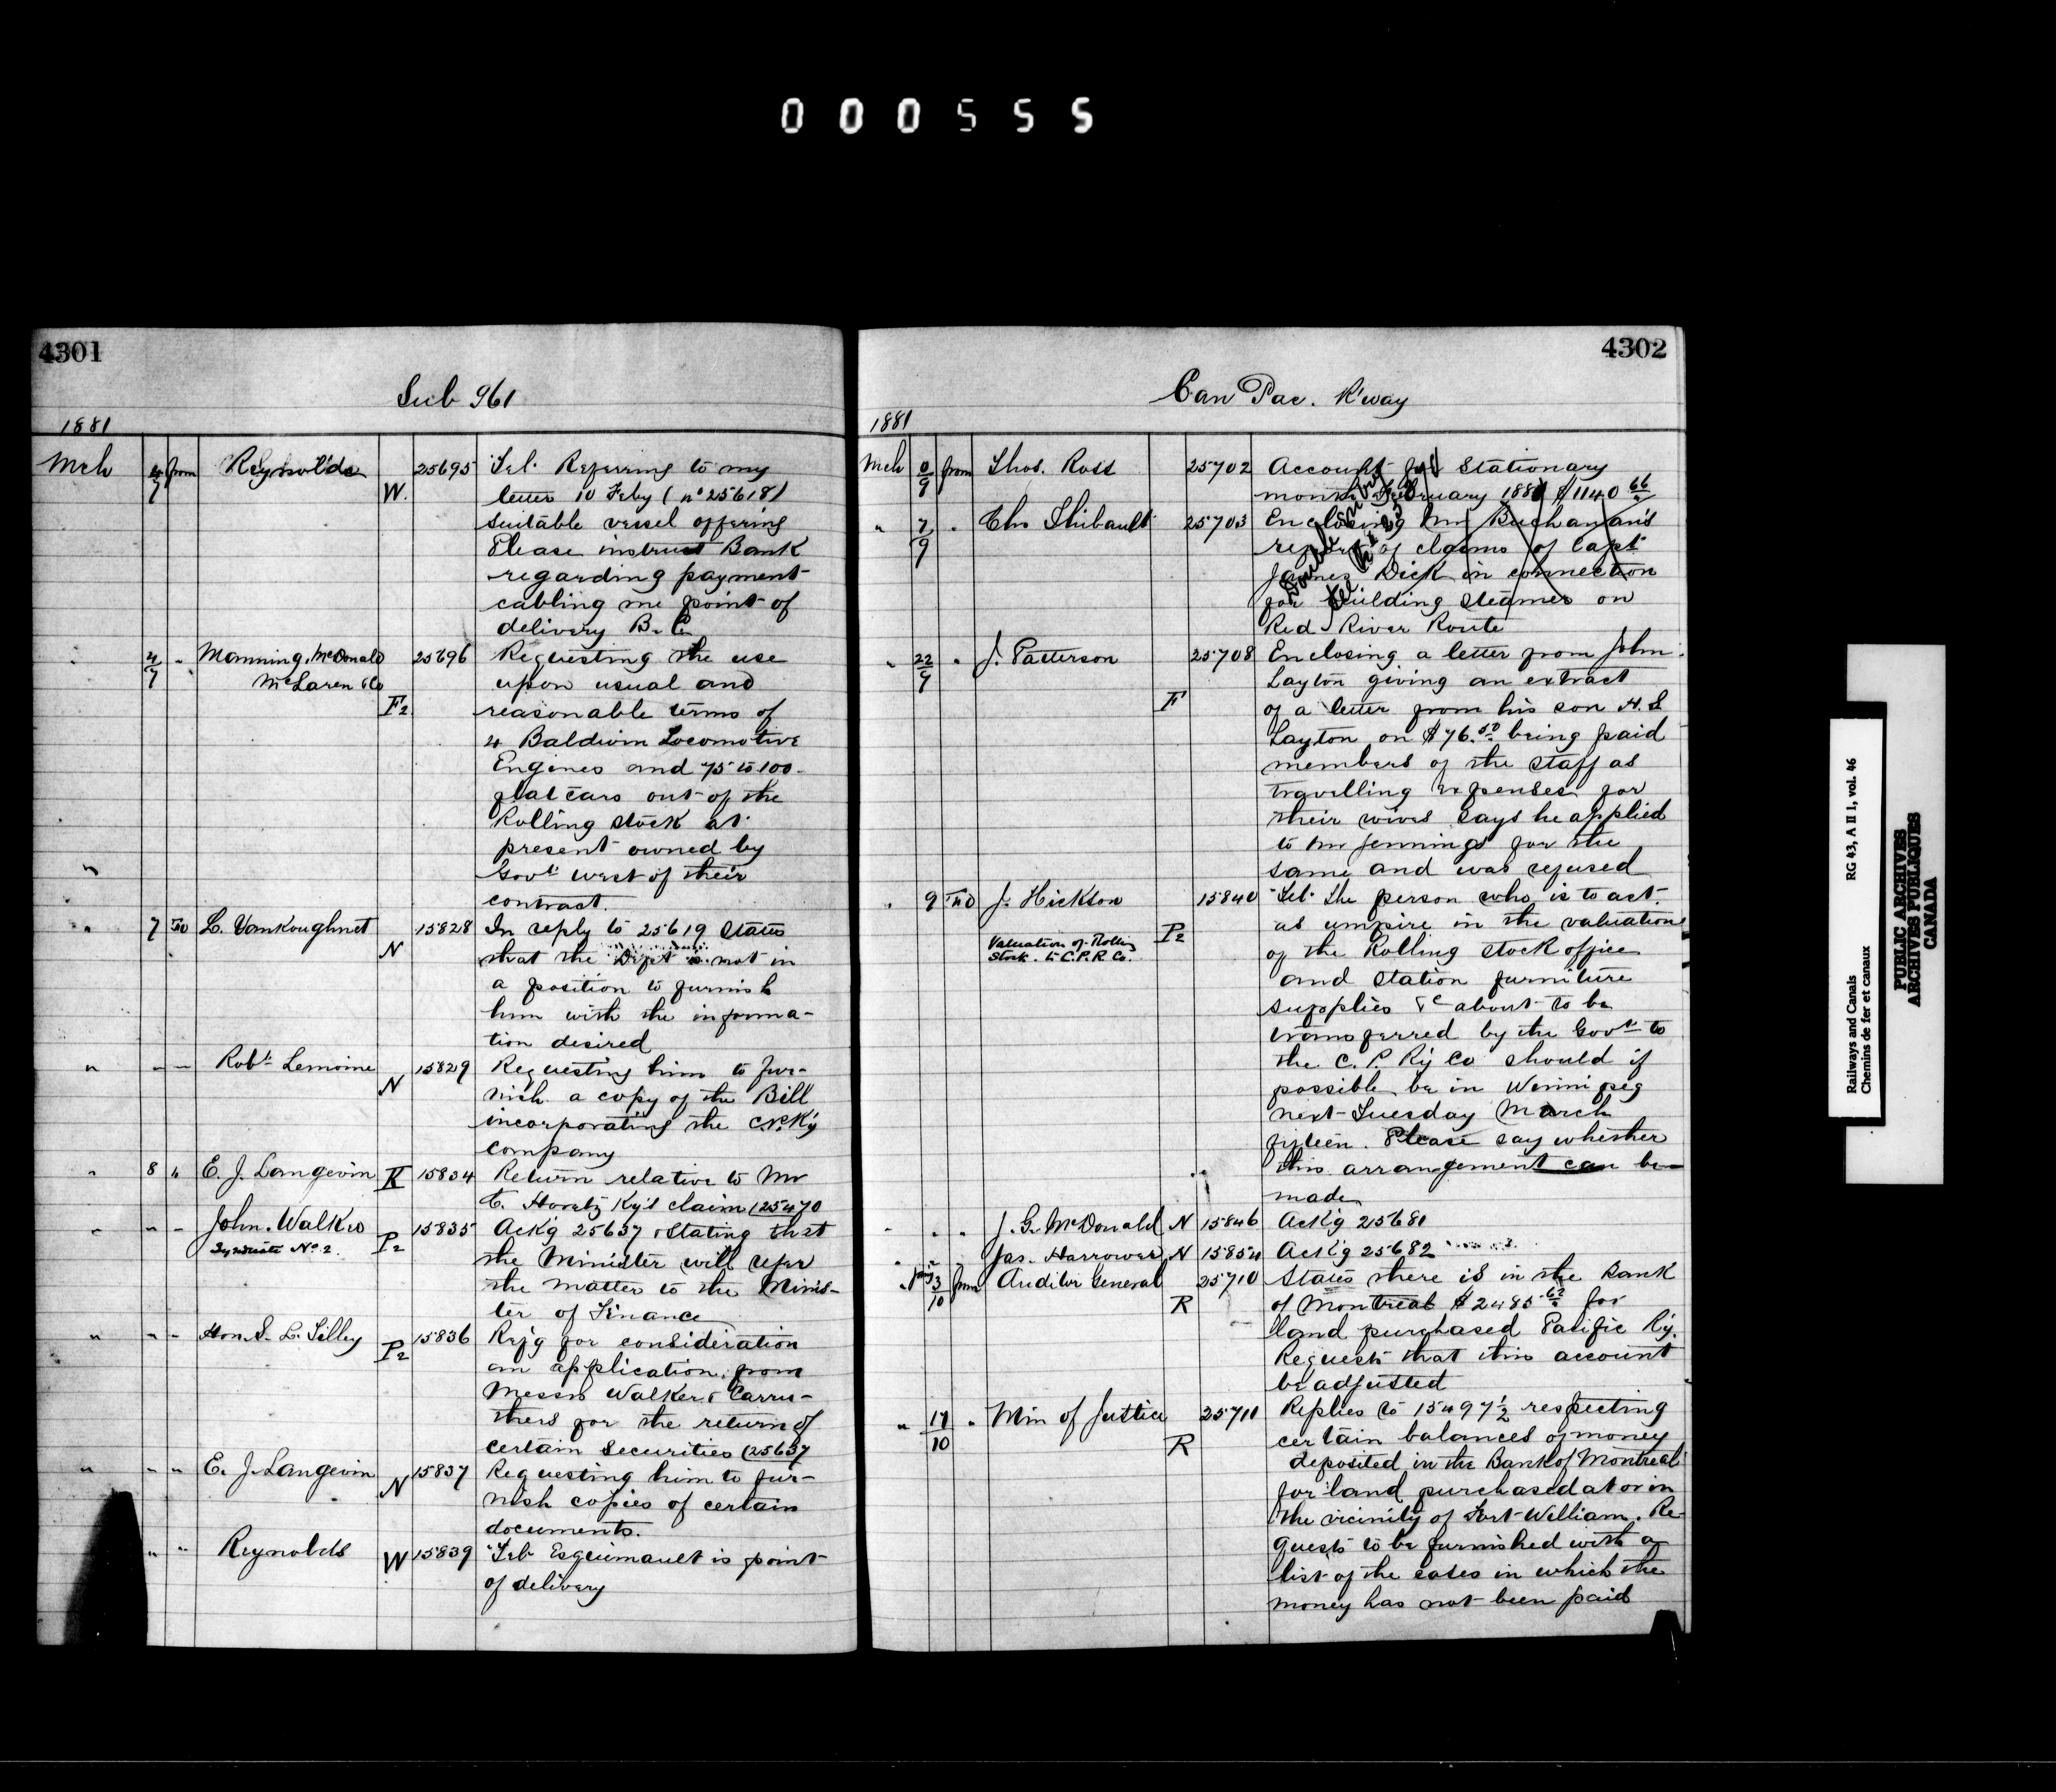 000555
4301
Sub 961
1881
Mch 4/7 from Reynolds W. 25695 Tel. Referring to my
letter 10 Feby (no 25618)
suitable vessel offering
Please instruct Bank
regarding payment
cabling me point of
delivery B. C.
" 4/7 " Manning, McDonald 25696 Requesting the use
McLaren & Co upon usual and
F2 reasonable terms of
4 Baldwin Locomotive
Engines and 75 to 100
flat cars out of the
Rolling stock at
present owned by
Govt west of their
contract.
" 7 to L. Vankoughnet 15828 In reply to 25619 states
N that the Dept is not in
a position to furnish
him with the informa-
tion desired
" " " Robt Lemoine 15829 Requesting him to fur-
N nish a copy of the Bill
incorporating the C.P.Ry
Company
" 8 " E. J. Langevin K 15834 Return relative to Mr
Ry's claim (25470
" " " John. Walker 15835 Ack'g 25637 & stating that
Syndicate No. 2. P2 the Minister will refer
the matter to the Minis-
ter of Finance
" " " Hon. S. L. Tilley 15836 Ref'g for consideration
P2 an application from
Messrs Walker & Carru-
thers for the return of
certain Securities (25637
" " " E. J. Langevin 15837 Requesting him to fur-
N nish copies of certain
documents.
" " Reynolds W 15839 Tel Esquimault is point
of delivery
4302
Can Pac. R'way
1881
Mch 9 from Thos. Ross 25702 Account for Stationary
month February 1881 $1140 66
" 7/9 " Ths Thibault 25703 Enclosing Mr Buchanan's
report of claims of Capt
James Dick in connection
for building steamer on
Red River Route
Double entry
See
" 22/9 " J. Patterson 25708 Enclosing a letter from John
Layton giving an extract
F of a letter from his son H. S
Layton on $76.50 being paid
members of the staff as
travelling expenses for
their wives says he applied
to Mr Jennings for the
same and was refused
" 9 to J. Hickson 15840 Tel. The person who is to act
P2 as umpire in the valuation
Valuation of Rolling
Stock to C.P.R. Co.
of the Rolling stock office
and station furniture
supplies &c about to be
transferred by the Govt to
the C. P. Ry Co should if
possible be in Winnipeg
next Tuesday March
fifteen. Please say whether
this arrangement can be
made
" " " J. G. McDonald N 15846 Ack'g 25681
" " Jas. Harrower N 15854 Ack'g 25682
" 3/10 from Auditor General 25710 States there is in the Bank
R of Montreal $2485 62 for
land purchased Pacific Ry.
Requests that this account
be adjusted
" 17/10 " Min of Justice 25711 Replies to 15497½ respecting
R certain balances of money
deposited in the Bank of Montreal
for land purchased at or in
the vicinity of Fort William. Re-
quests to be furnished with a
list of the cases in which the
money has not been paid
RG 43, A II 1, vol. 46
Railways and Canals
Chemins de fer et canaux
PUBLIC ARCHIVES
ARCHIVES PUBLIQUES
CANADA